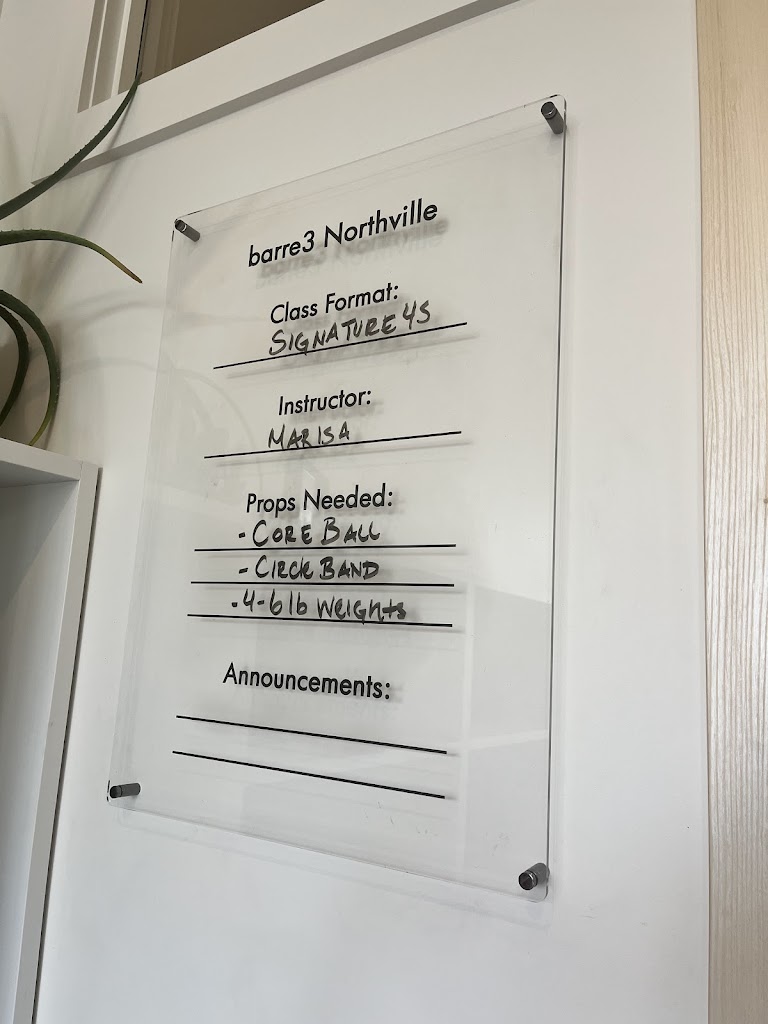 barre3 Northville
Class Format:
SIGNATURE 45
Instructor:
MARISA
Props Needed:
- CORE BALL
- CIRCLE BAND
- 4-6 lb WEIGHts
Announcements: